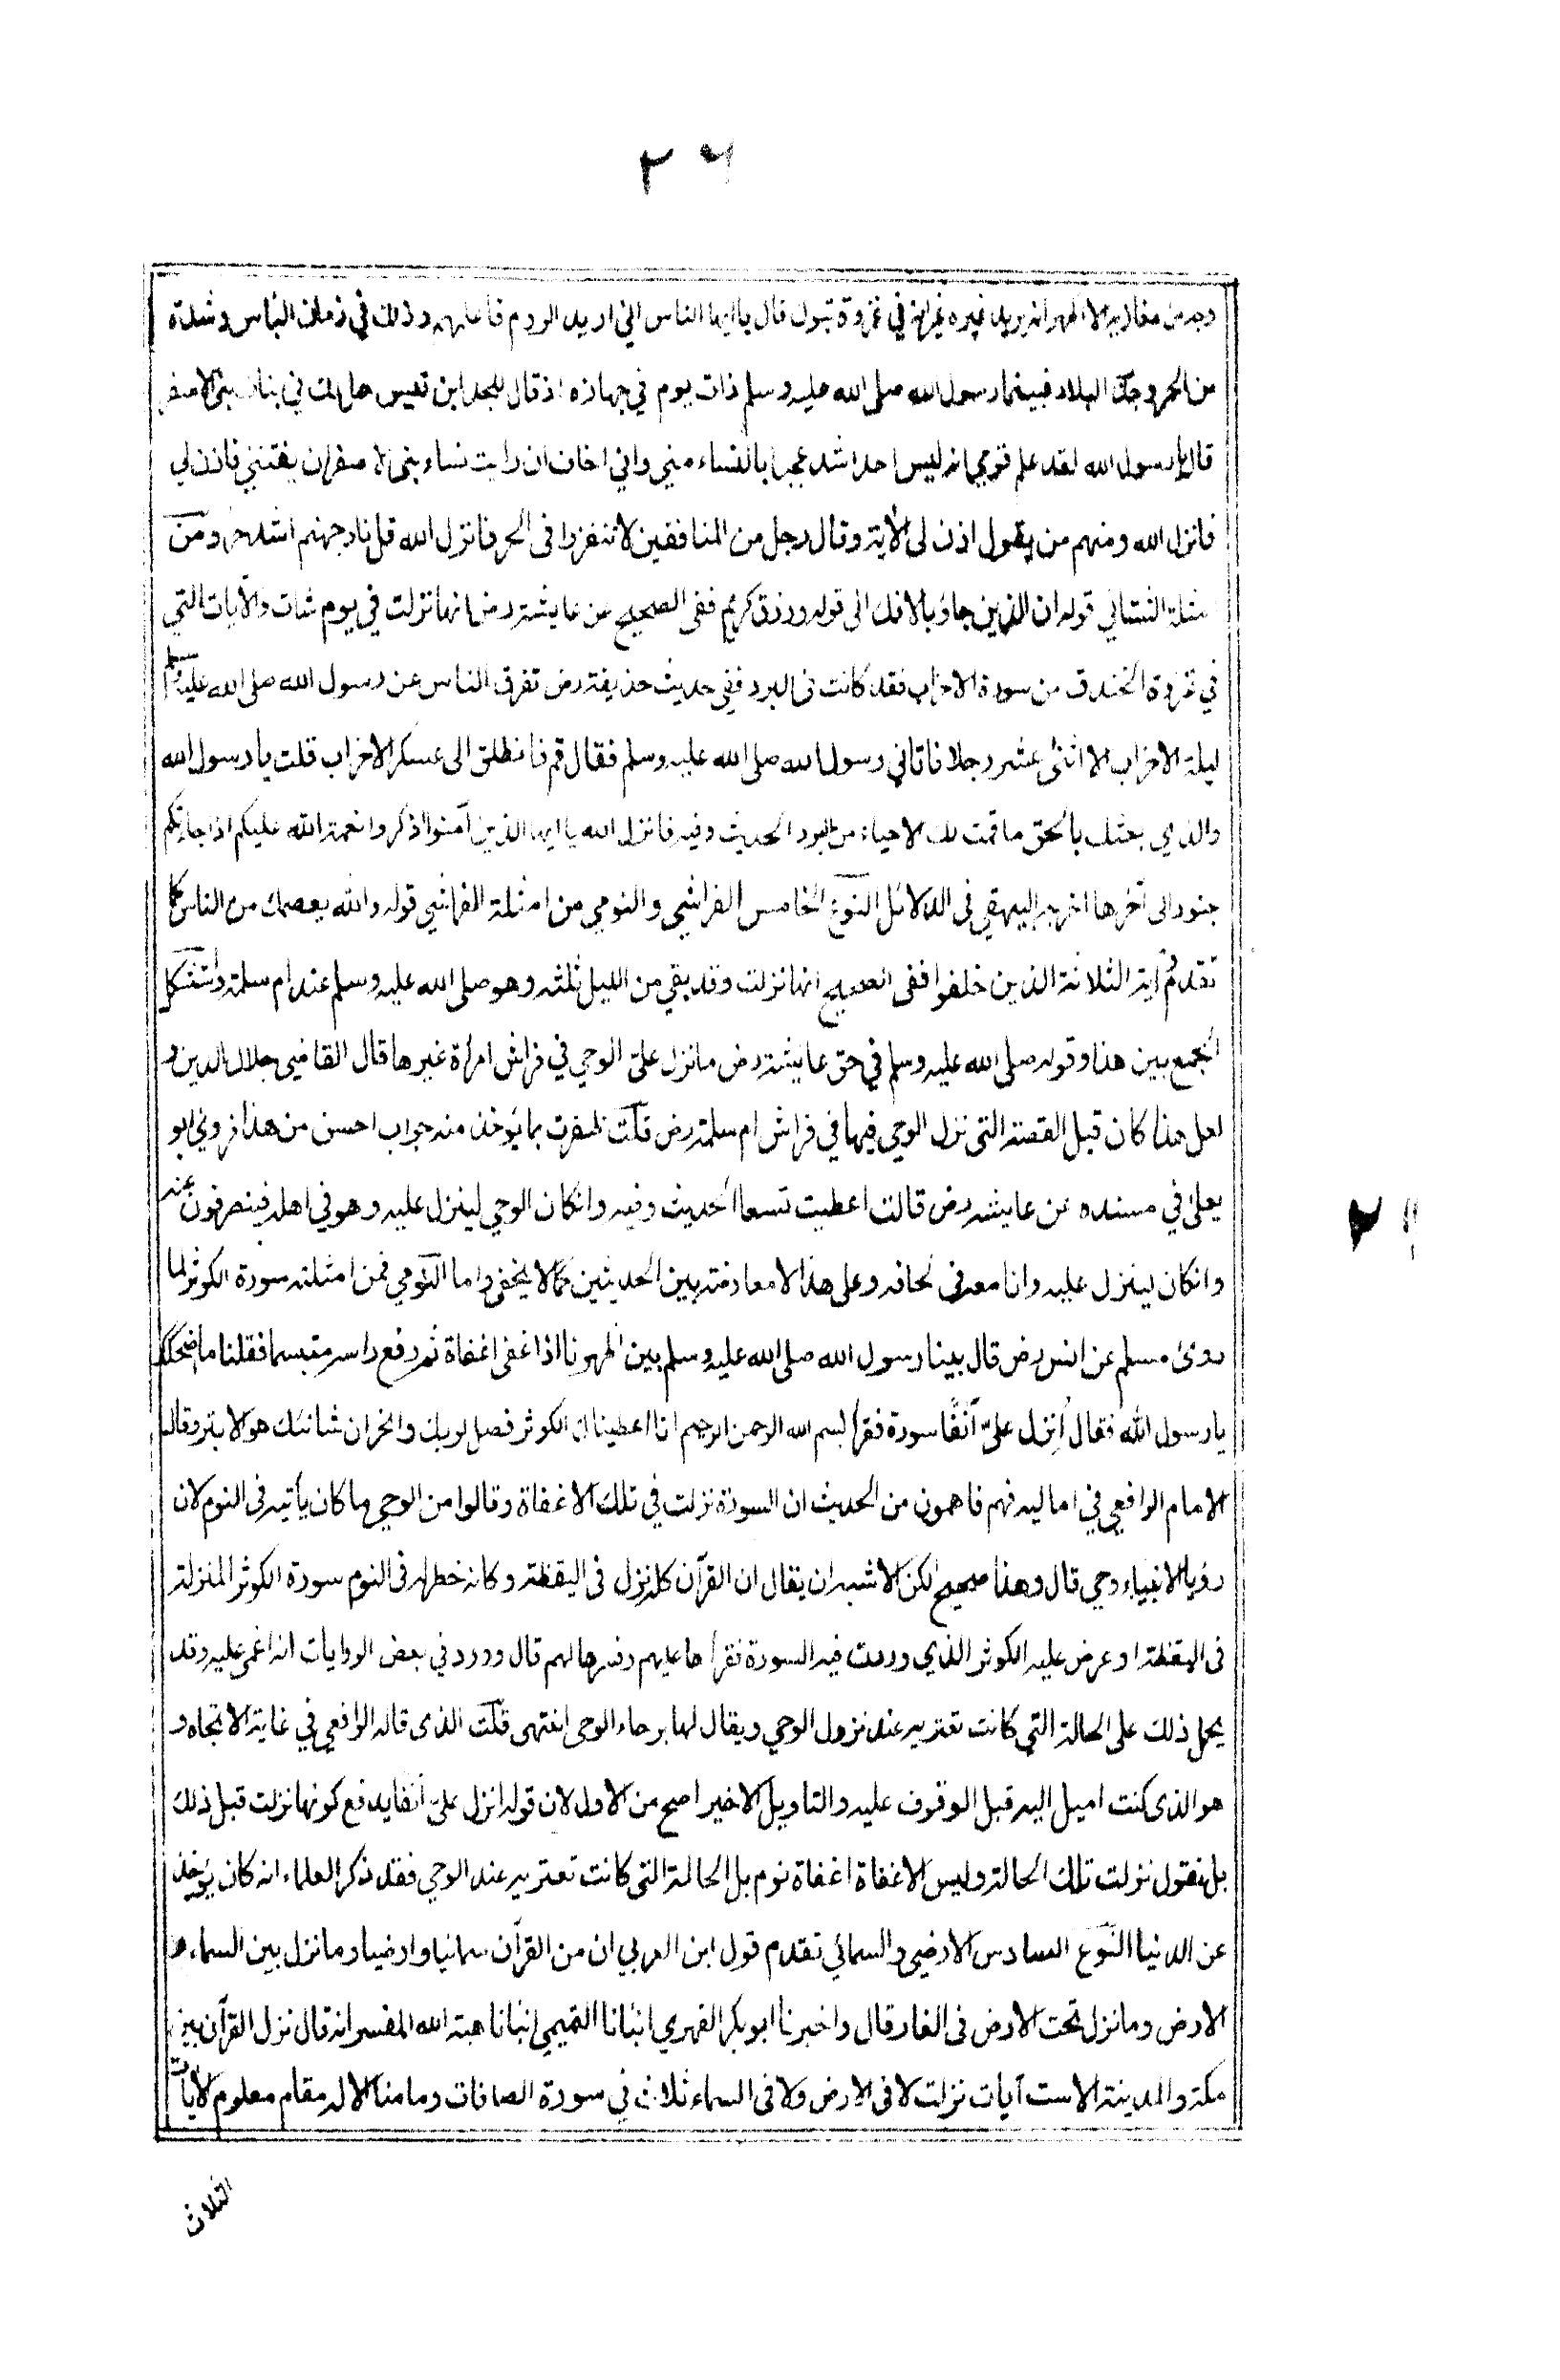 ٢٦
وجه من مغازيه الا اظهر انه يريد غيره غير انه في غزوة تبوك قال يا ايها الناس اني اريد الروم فاعلمهم وذلك في زمان البأس وشدة
من الحر وجدب البلاد فبينما رسول الله صلى الله عليه وسلم ذات يوم في جهازه اذ قال للجد ابن قيس هل لك في بنات بنى الاصفر
قال يا رسول الله لقد علم قومي انه ليس احد اشد عجبا بالنساء مني واني اخاف ان رايت نساء بنى الاصفر ان يفتنني فاذن لي
فانزل الله ومنهم من يقول اذن لى الآية وقال رجل من المنافقين لا تنفروا فى الحر فانزل الله قل نار جهنم اشد حرا ومن
امثلة الشتائي قوله ان الذين جاؤ بالافك الى قوله ورزق كريم ففى الصحيح عن عايشة رض انها نزلت في يوم شات والآيات التي
في غزوة الخندق من سورة الاحزاب فقد كانت فى البرد ففي حديث حذيفة رض تفرق الناس عن رسول الله صلى الله عليه وسلم
ليلة الاحزاب الا اثنى عشر رجلا فاتاني رسول الله صلى الله عليه وسلم فقال قم فانطلق الى عسكر الاحزاب قلت يا رسول الله
والذي بعثك بالحق ما قمت لك الا حياء من البرد الحديث وفيه فانزل الله يا ايها الذين آمنوا اذكروا نعمة الله عليكم اذ جاءتكم
جنود الى آخرها اخرجه البيهقي فى الدلائل النوع الخامس الفراشي والنومي من امثلة الفراشي قوله والله يعصمك من الناس كما
تقدم وآية الثلاثة الذين خلفوا ففى الصحيح انها نزلت وقد بقي من الليل ثلثه وهو صلى الله عليه وسلم عند ام سلمة واستشكل
الجمع بين هذا وقوله صلى الله عليه وسلم في حق عايشة رض ما نزل علىّ الوحي في فراش امرأة غيرها قال القاضي جلال الدين و
لعل هذا كان قبل القصة التى نزل الوحي فيها في فراش ام سلمة رض قلت ظفرت بما يؤخذ منه جواب احسن من هذا فروى ابو
يعلى في مسنده عن عايشة رض قالت اعطيت تسعا الحديث وفيه وانكان الوحي لينزل عليه وهو في اهله فينصرفون عنه
وانكان لينزل عليه وانا معه فى لحافه وعلى هذا لا معارضة بين الحديثين كما لا يخفى واما النومي فمن امثلته سورة الكوثر لما
روى مسلم عن انس رض قال بينا رسول الله صلى الله عليه وسلم بين اظهرنا اذا غفى اغفاة ثم رفع راسه مبتسما فقلنا ما اضحكك
يا رسول الله فقال اُنزل علىّ آنفًا سورة فقرأ بسم الله الرحمن الرحيم انا اعطيناك الكوثر فصل لربك وانحر ان شانئك هو الابتر وقال
الامام الرافعي في اماليه فهم فاهمون من الحديث ان السورة نزلت في تلك الاغفاة وقالوا من الوحي ما كان يأتيه فى النوم لان
رؤيا الانبياء وحي قال وهذا صحيح لكن الاشبه ان يقال ان القرآن كله نزل فى اليقظة وكانه خطر له فى النوم سورة الكوثر المنزلة
فى اليقظة او عرض عليه الكوثر الذي وردت فيه السورة فقرأها عليهم وفسرها لهم قال وورد في بعض الروايات انه اغمى عليه وقد
يحمل ذلك على الحالة التي كانت تعتريه عند نزول الوحي ويقال لها برحاء الوحى انتهى قلت الذى قاله الرافعي في غاية الاتجاه و
هو الذى كنت اميل اليه قبل الوقوف عليه والتاويل الاخير اصح من الاول لان قوله انزل علىّ آنفا يدفع كونها نزلت قبل ذلك
بل نقول نزلت تلك الحالة وليس الاغفاة اغفاة نوم بل الحالة التى كانت تعتريه عند الوحي فقد ذكر العلماء انه كان يؤخذ
عن الدنيا النوع السادس الارضي والسمائي تقدم قول ابن العربي ان من القرآن سمائيا وارضيا وما نزل بين السماء و
الارض وما نزل تحت الارض فى الغار قال واخبرنا ابو بكر الفهري انبانا التميمي انبانا هبة الله المفسر انه قال نزل القرآن بين
مكة والمدينة الا ست آيات نزلت لا فى الارض ولا فى السماء ثلاث في سورة الصافات وما منا الا له مقام معلوم الآيات
الثلاث